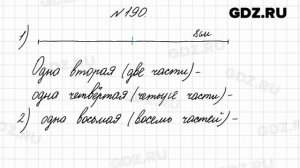 GDZ.RU
№190.
1) 8см
Одна вторая (две части) -
одна четвёртая (четыре части) -
2) одна восьмая (восемь частей) -
GDZ.RU